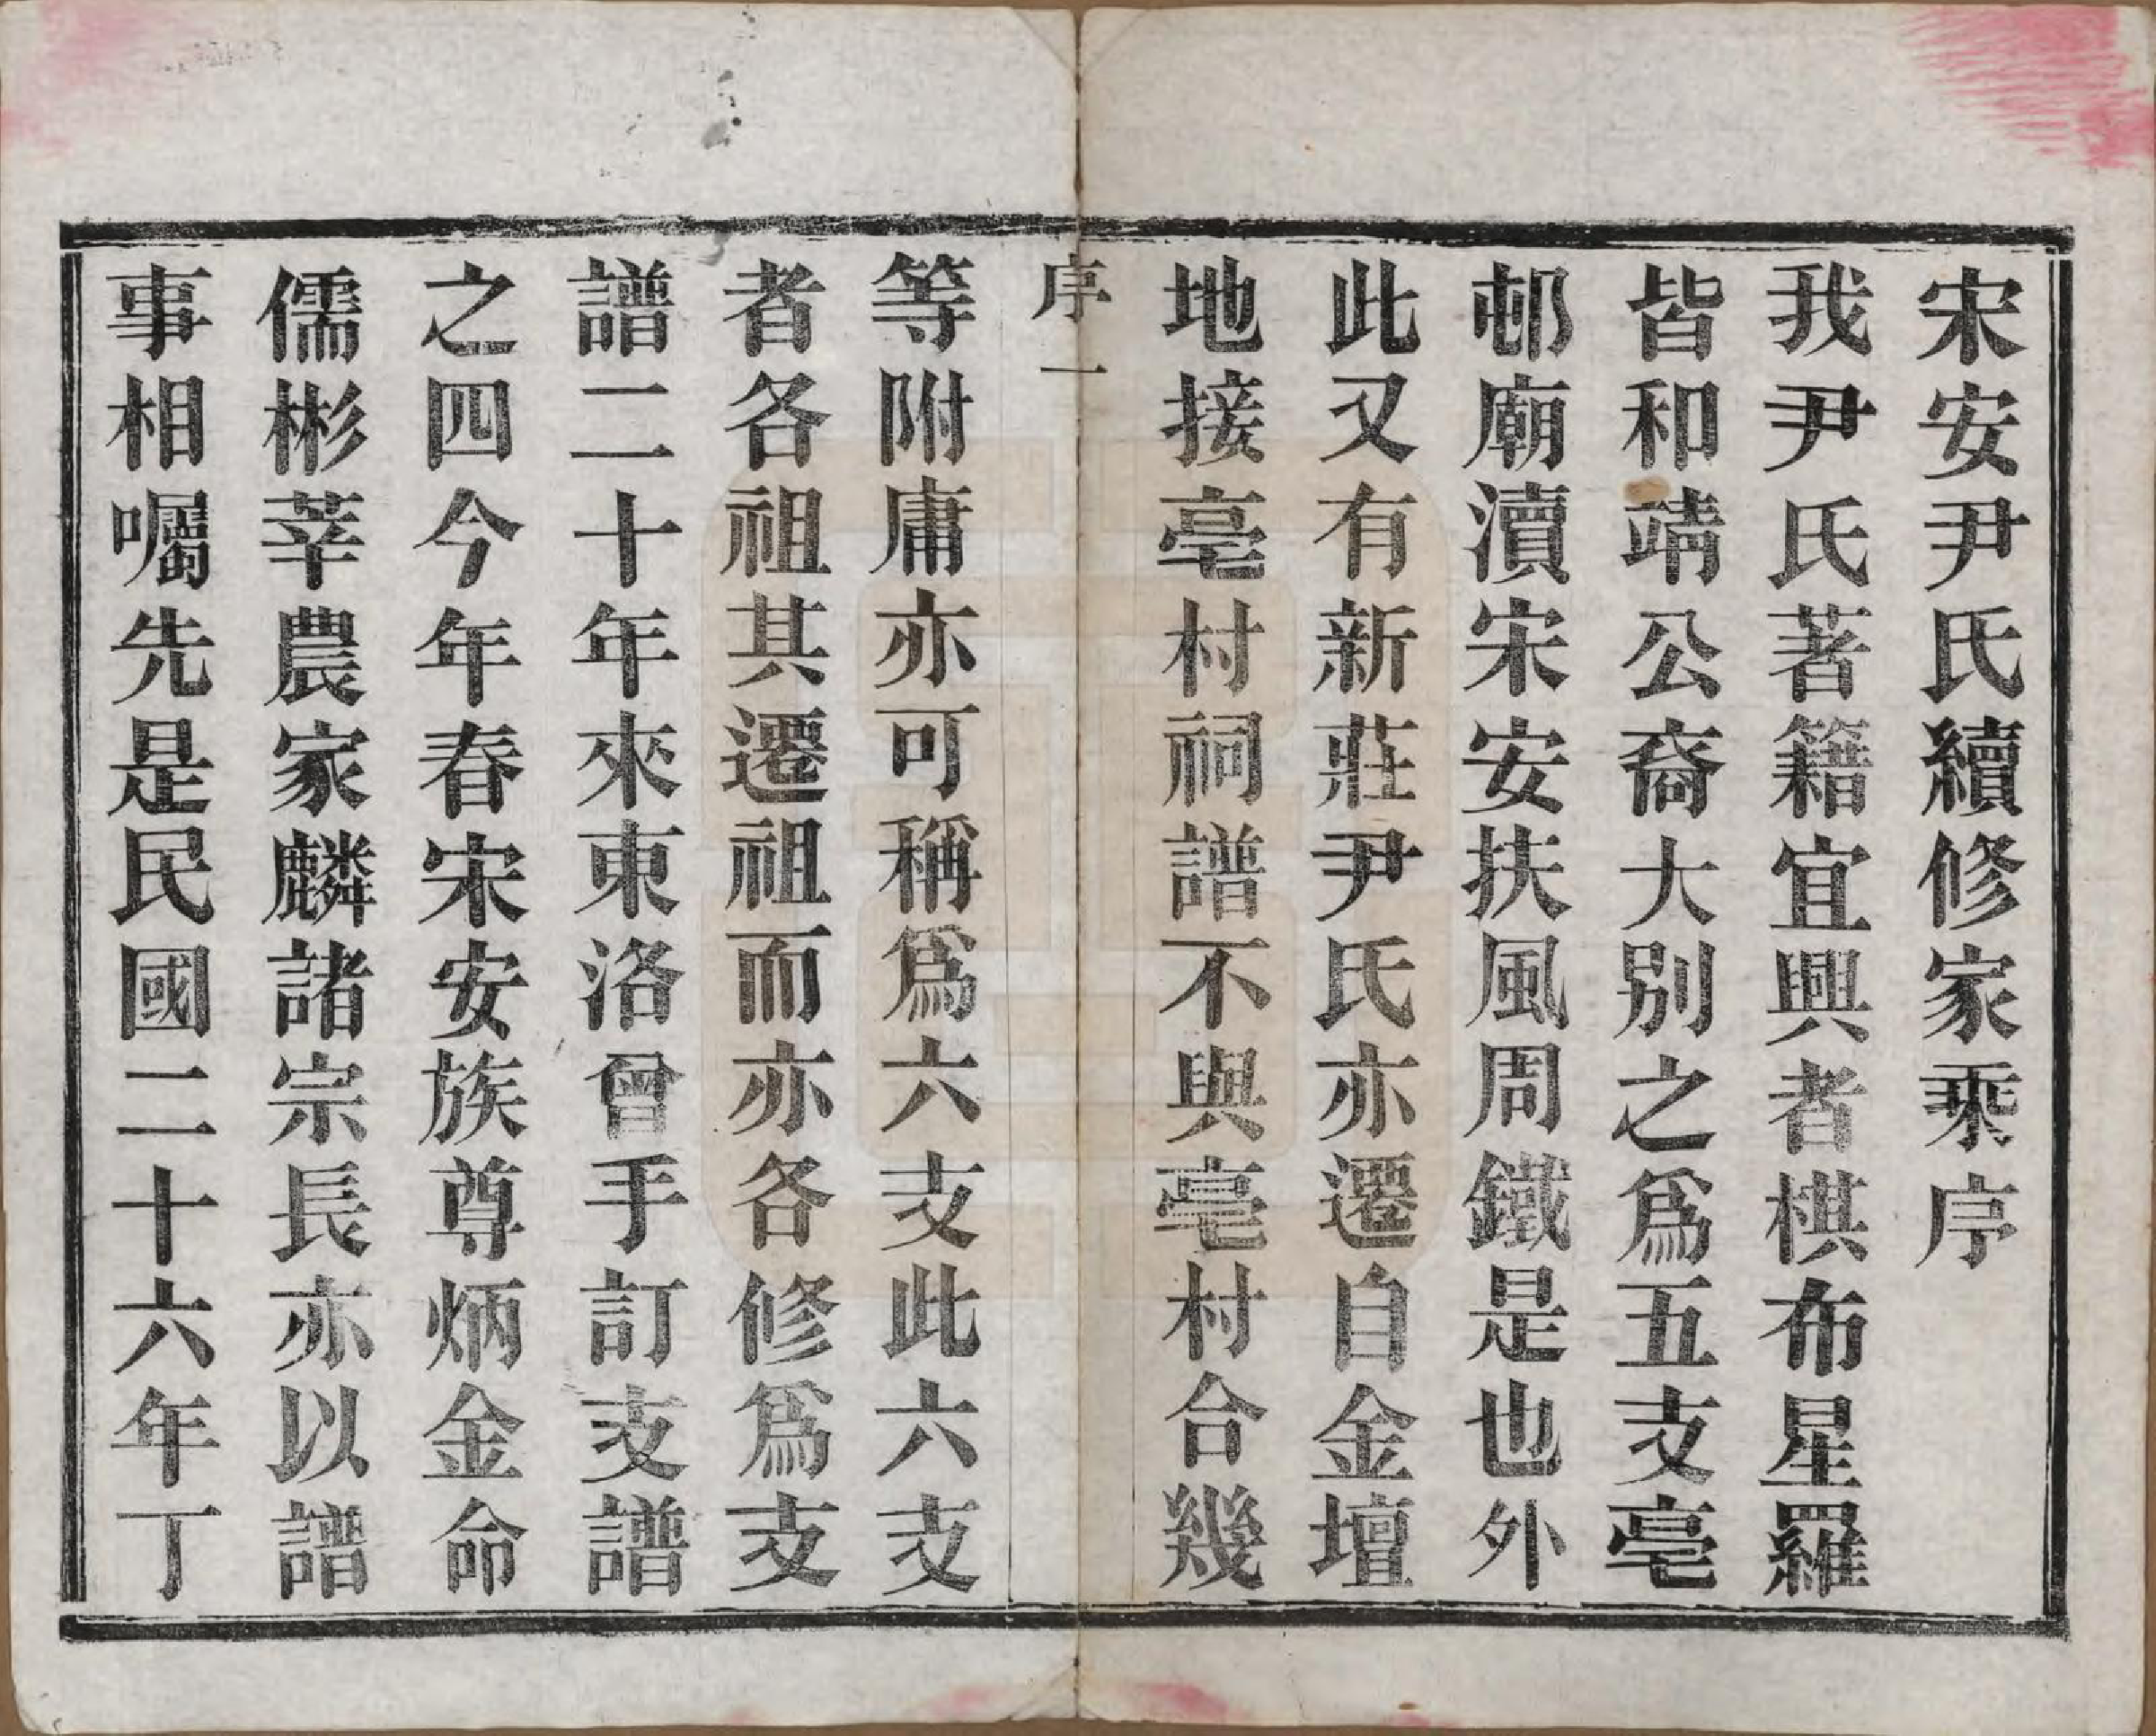 宋安尹氏續修家乘序
我尹氏著籍宜興者棋布星羅
皆和靖公裔大別之爲五支亳
邨廟瀆宋安扶風周鐵是也外
此又有新莊尹氏亦遷自金壇
地接亳村祠譜不與亳村合幾
序 一
等附庸亦可稱爲六支此六支
者各祖其遷祖而亦各修爲支
譜二十年來東洛曾手訂支譜
之四今年春宋安族尊炳金命
儒彬莘農家麟諸宗長亦以譜
事相囑先是民國二十六年丁